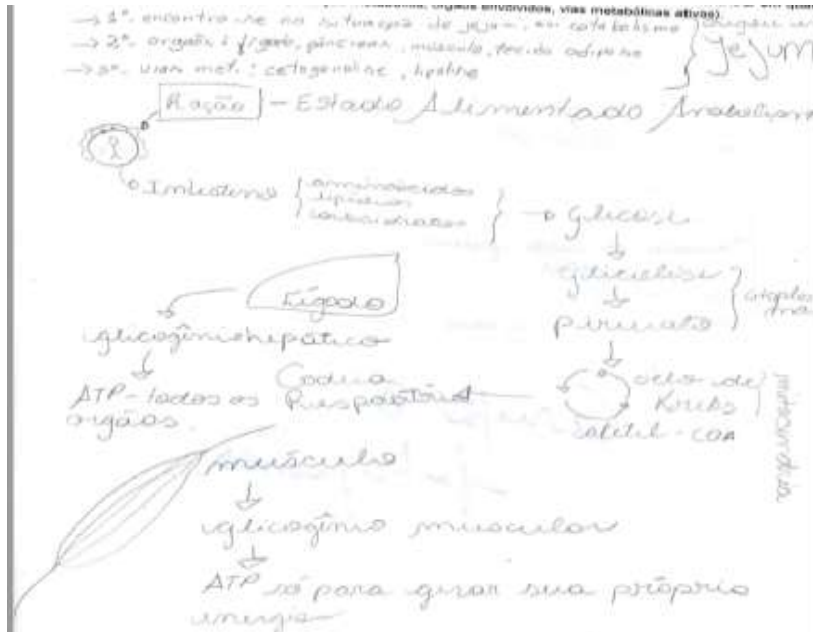 órgãos envolvidos, vias metabólicas ativas).
→ 1º- encontra-se na situação de jejum, em catabolismo
→ 2º- orgãos: fígado, pâncreas, músculo, tecido adiposo
→ 3º- vias met.: cetogenolise, lipolise
Jejum
Ração - Estado Alimentado Anabolismo
Intestino { aminoácidos
lipídios
carboidratos } → glicose
Fígado
glicólise
glicogênio hepático
piruvato
ATP - todos os orgãos.
Cadeia Respiratória
ciclo de Krebs
acetil-COA
mitocondria
músculo
glicogênio muscular
ATP só para gerar sua própria
energia